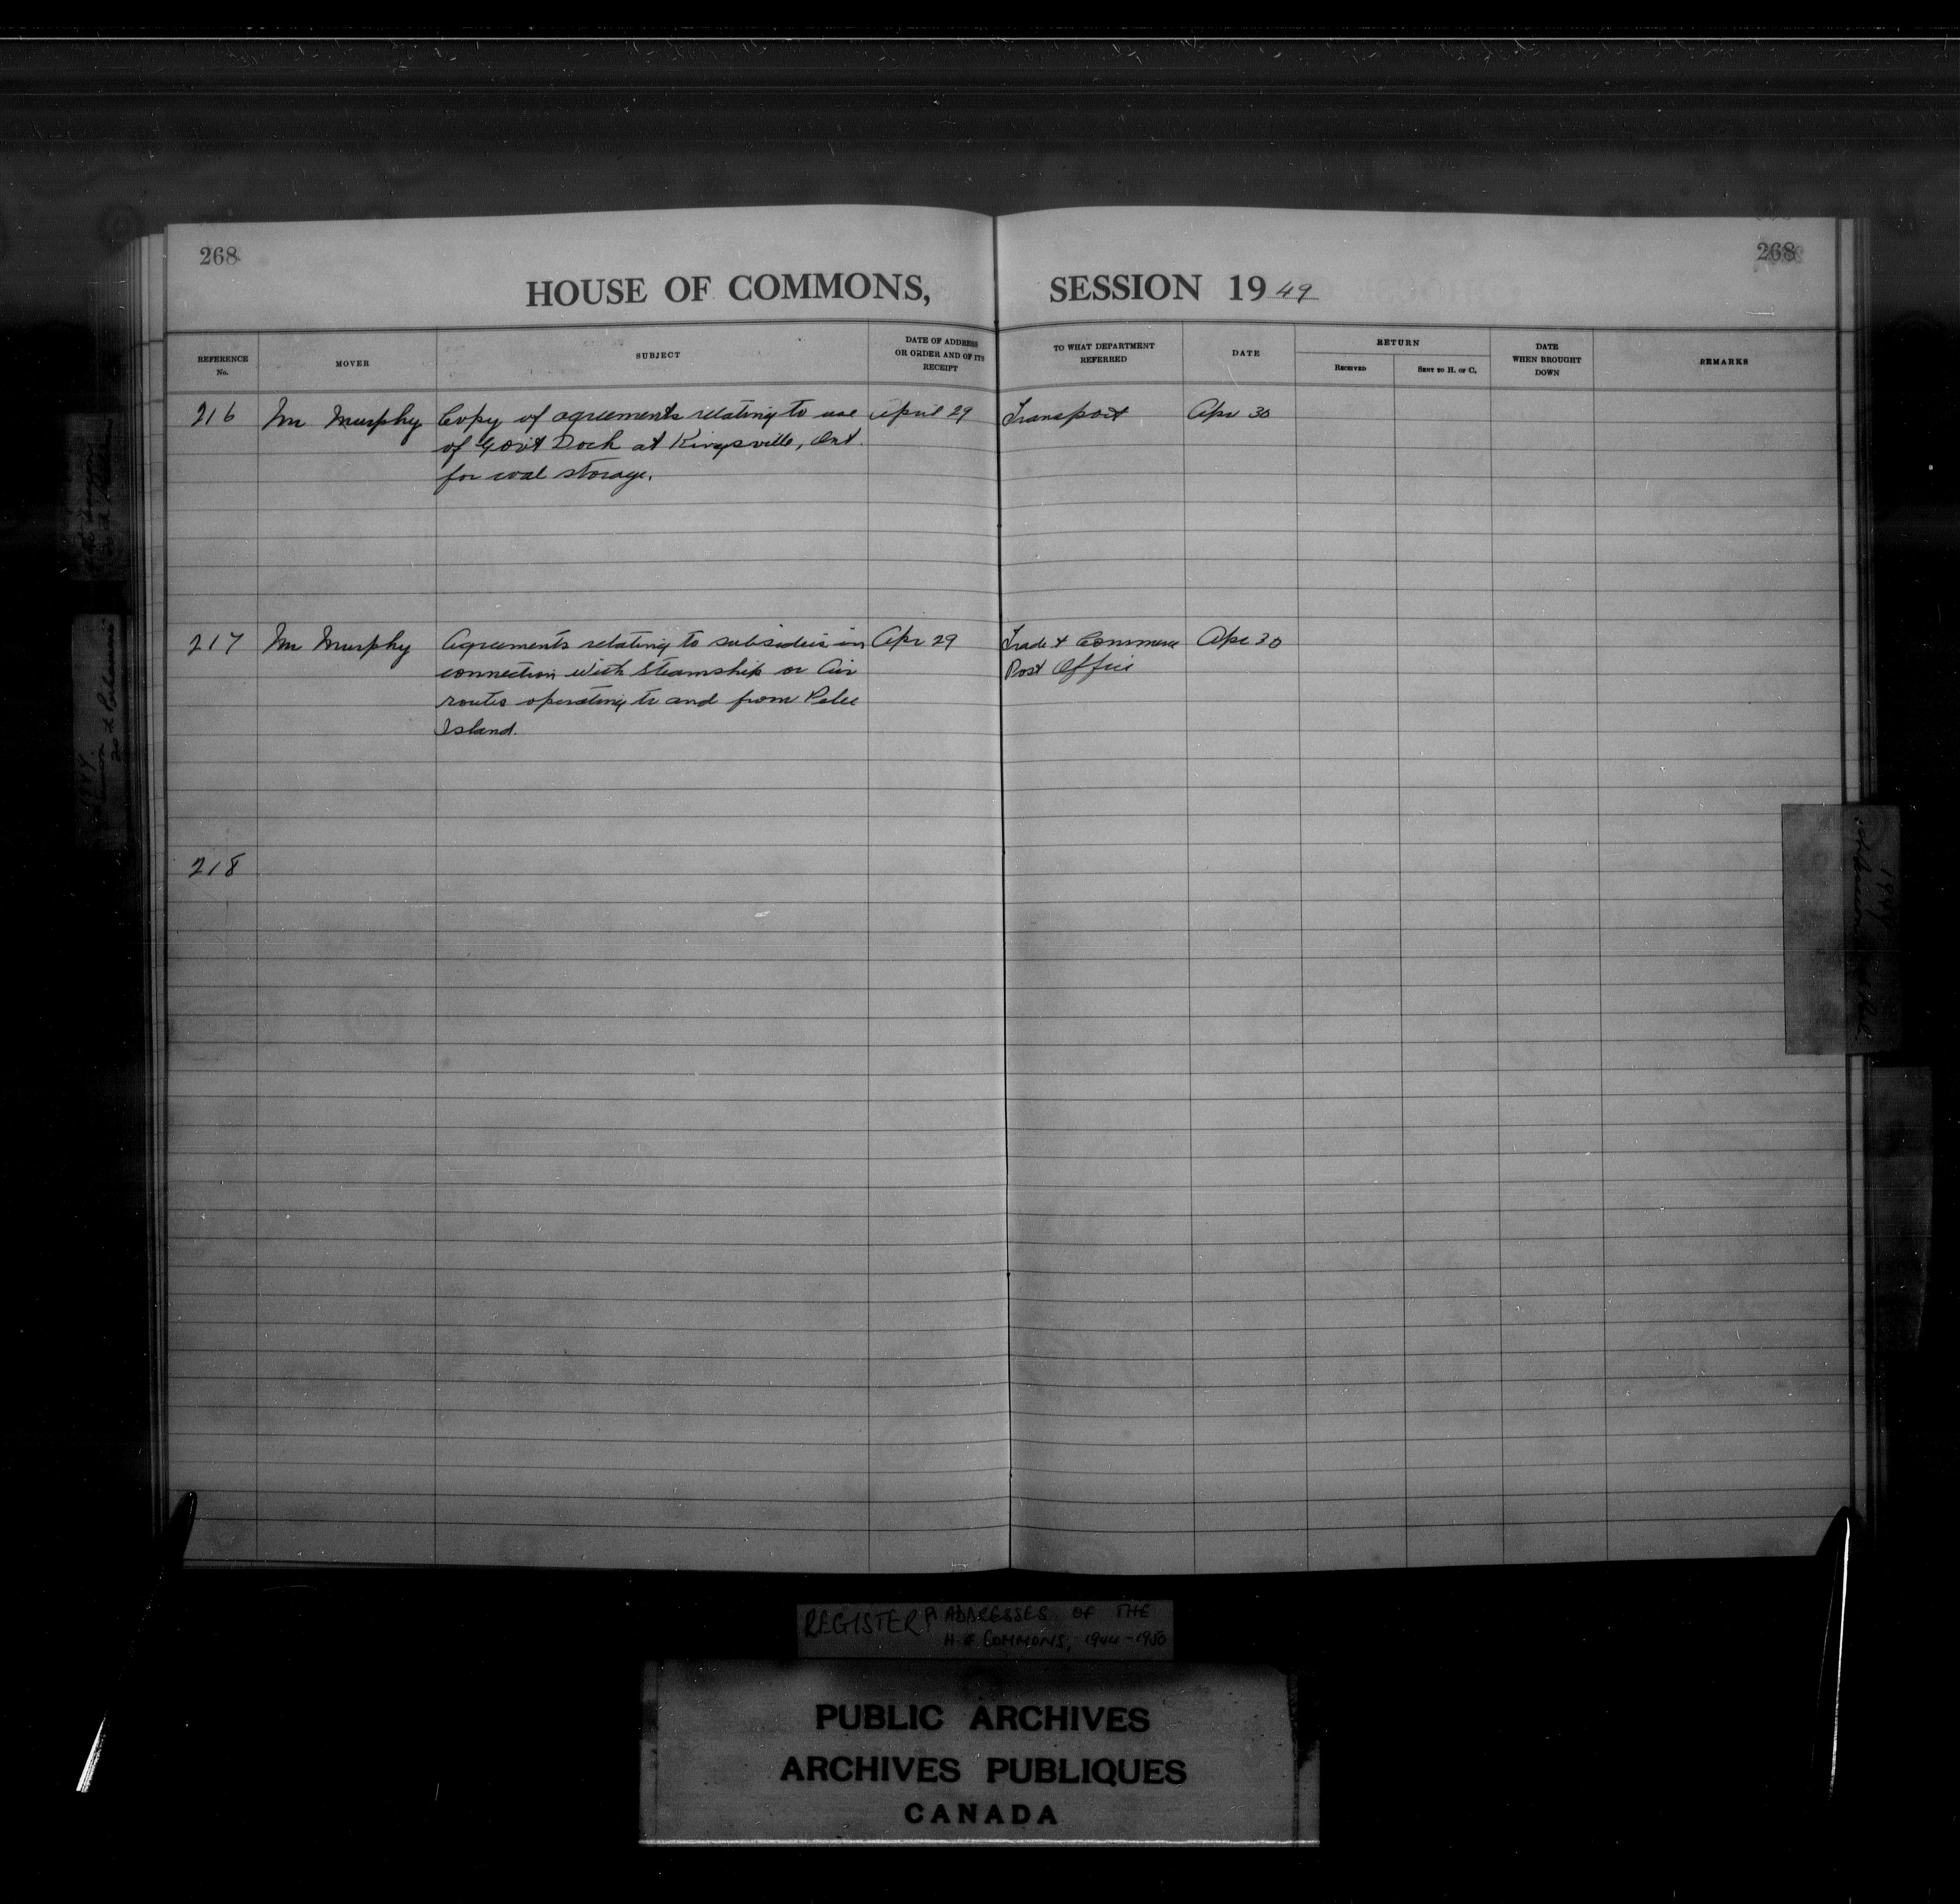 268
268
HOUSE OF COMMONS, SESSION 1949
REFERENCE No.
MOVER
SUBJECT
DATE OF ADDRESS OR ORDER AND OF ITS RECEIPT
TO WHAT DEPARTMENT REFERRED
DATE
RETURN
RECEIVED
SENT TO H. OF C.
DATE WHEN BROUGHT DOWN
REMARKS
216 Mr Murphy Copy of agreements relating to use April 29 Transport Apr 30
of Gov't Dock at Kingsville, Ont.
for coal storage.
217 Mr Murphy Agreements relating to subsidies in Apr 29 Trade & Commerce Apr 30
connection with Steamship or Air Post Office
routes operating to and from Pelee
Island.
218
REGISTER ADDRESSES OF THE
H. of COMMONS, 1944-1950
PUBLIC ARCHIVES
ARCHIVES PUBLIQUES
CANADA